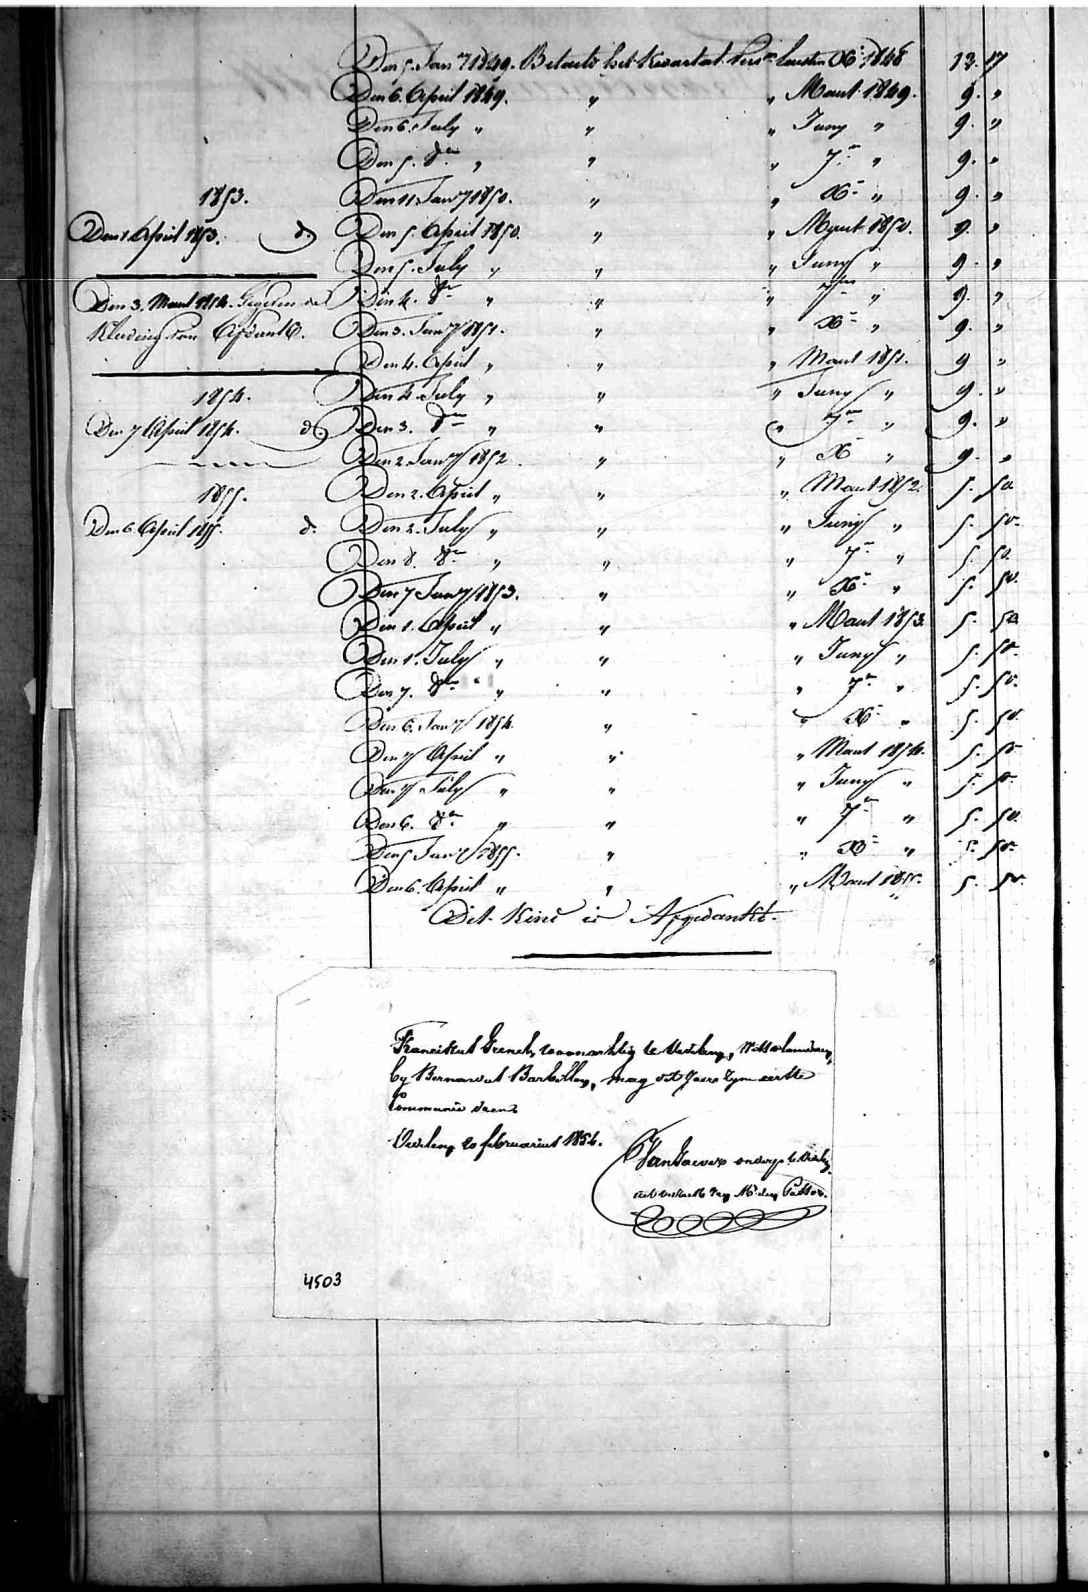 Den 5. Jan⁠ʸ 1849. Betaeld het Kwartaal laesten Xᵇ 1848 13. 17
Den 6. April 1849. " " Maart 1849. 9. "
Den 6. July " " " Juny " 9. "
Den 5. 8ᵉʳ " " " 7ʳ " 9. "
1853.
Den 11 Janʸ 1850. " " Xᵇ " 9. "
Den 1 April 1853. d.
Den 5. April 1850. " " Maart 1850. 9. "
Den 5. July " " " Juny " 9. "
Den 3. Maart 1854. Gegeven de
Den 4. 8ᵉʳ " " " 7ᵇᵉʳ " 9. "
Kleding van Afdank.
Den 3. Janʸ 1851. " " Xᵇ " 9. "
Den 4. April " " " Maart 1851. 9 "
1854.
Den 4 July " " " Juny " 9. "
Den 7 April 1854. d.
Den 3. 8ᵉʳ " " " 7ʳ " 9. "
Den 2 Janʸ 1852. " " Xᵇ " 9. "
1855.
Den 2. April " " " Maart 1852. 5. 50.
Den 6 April 1855. d.
Den 2. July " " " Juny " 5. 50.
Den 8. 8ᵉʳ " " " 7ʳ " 5. 50.
Den 7 Janʸ 1853. " " Xᵇ " 5. 50.
Den 1. April " " " Maart 1853. 5. 50
Den 1. July " " " Juny " 5. 50.
Den 7. 8ᵉʳ " " " 7ʳ " 5. 50.
Den 6. Janʸ 1854. " " Xᵇ " 5. 50.
Den 7 April " " " Maart 1854. 5. 50
Den 7 July " " " Juny " 5. 50.
Den 6. 8ᵉʳ " " " 7ʳ " 5. 50.
Den 5 Janʸ 1855. " " Xᵇ " 5. 50.
Den 6. April " " " Maart 1855. 5. 50.
Dit Kind is Afgedankt.
Franciskus Grenel, woonachtig te
by Bernardus, mag dit Jaer zyn eerste
Communie doen
20 februarius 1856.
Van onderp. te
Pastor.
4503